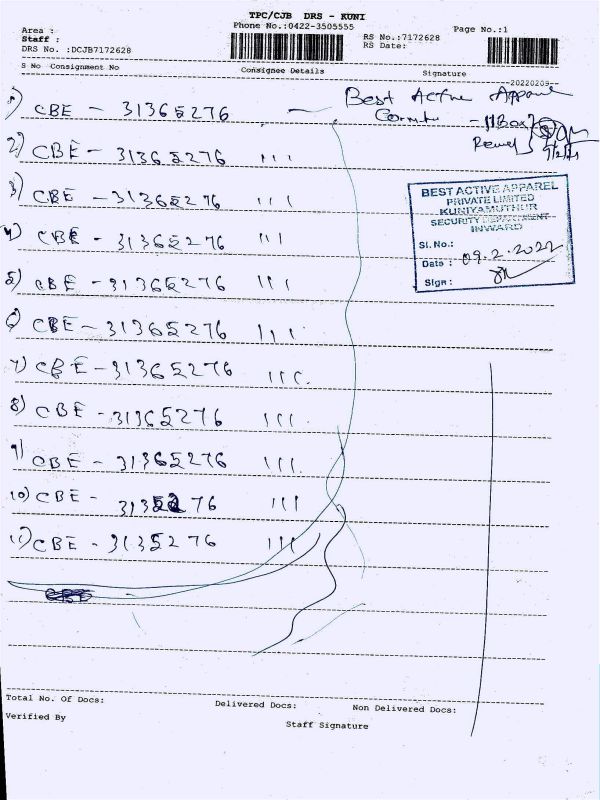 TPC/CJB DRS - KUNI
Area :
Phone No.:0422-3505555
Page No.:1
Staff :
RS No.:7172628
DRS No. :DCJB7172628
RS Date:
S No Consignment No
Consignee Details
Signature
20220209
1) CBE - 31365276
Best Active Apparel
- 11 Box
2) CBE - 31365276 111
3) CBE - 31365276 111
4) CBE - 31365276 111
5) CBE - 31365276 111
6) CBE - 31365276 111
7) CBE - 31365276 111.
8) CBE - 31365276 111.
9) CBE - 31365276 111.
10) CBE - 76 111
11) CBE - 3135276 111
BEST ACTIVE APPAREL
PRIVATE LIMITED
KUNIYAMUTHUR
SECURITY DEPARTMENT
INWARD
Sl. No.:
Date : 09.2.2022
Sign :
Total No. Of Docs:
Delivered Docs:
Non Delivered Docs:
Verified By
Staff Signature